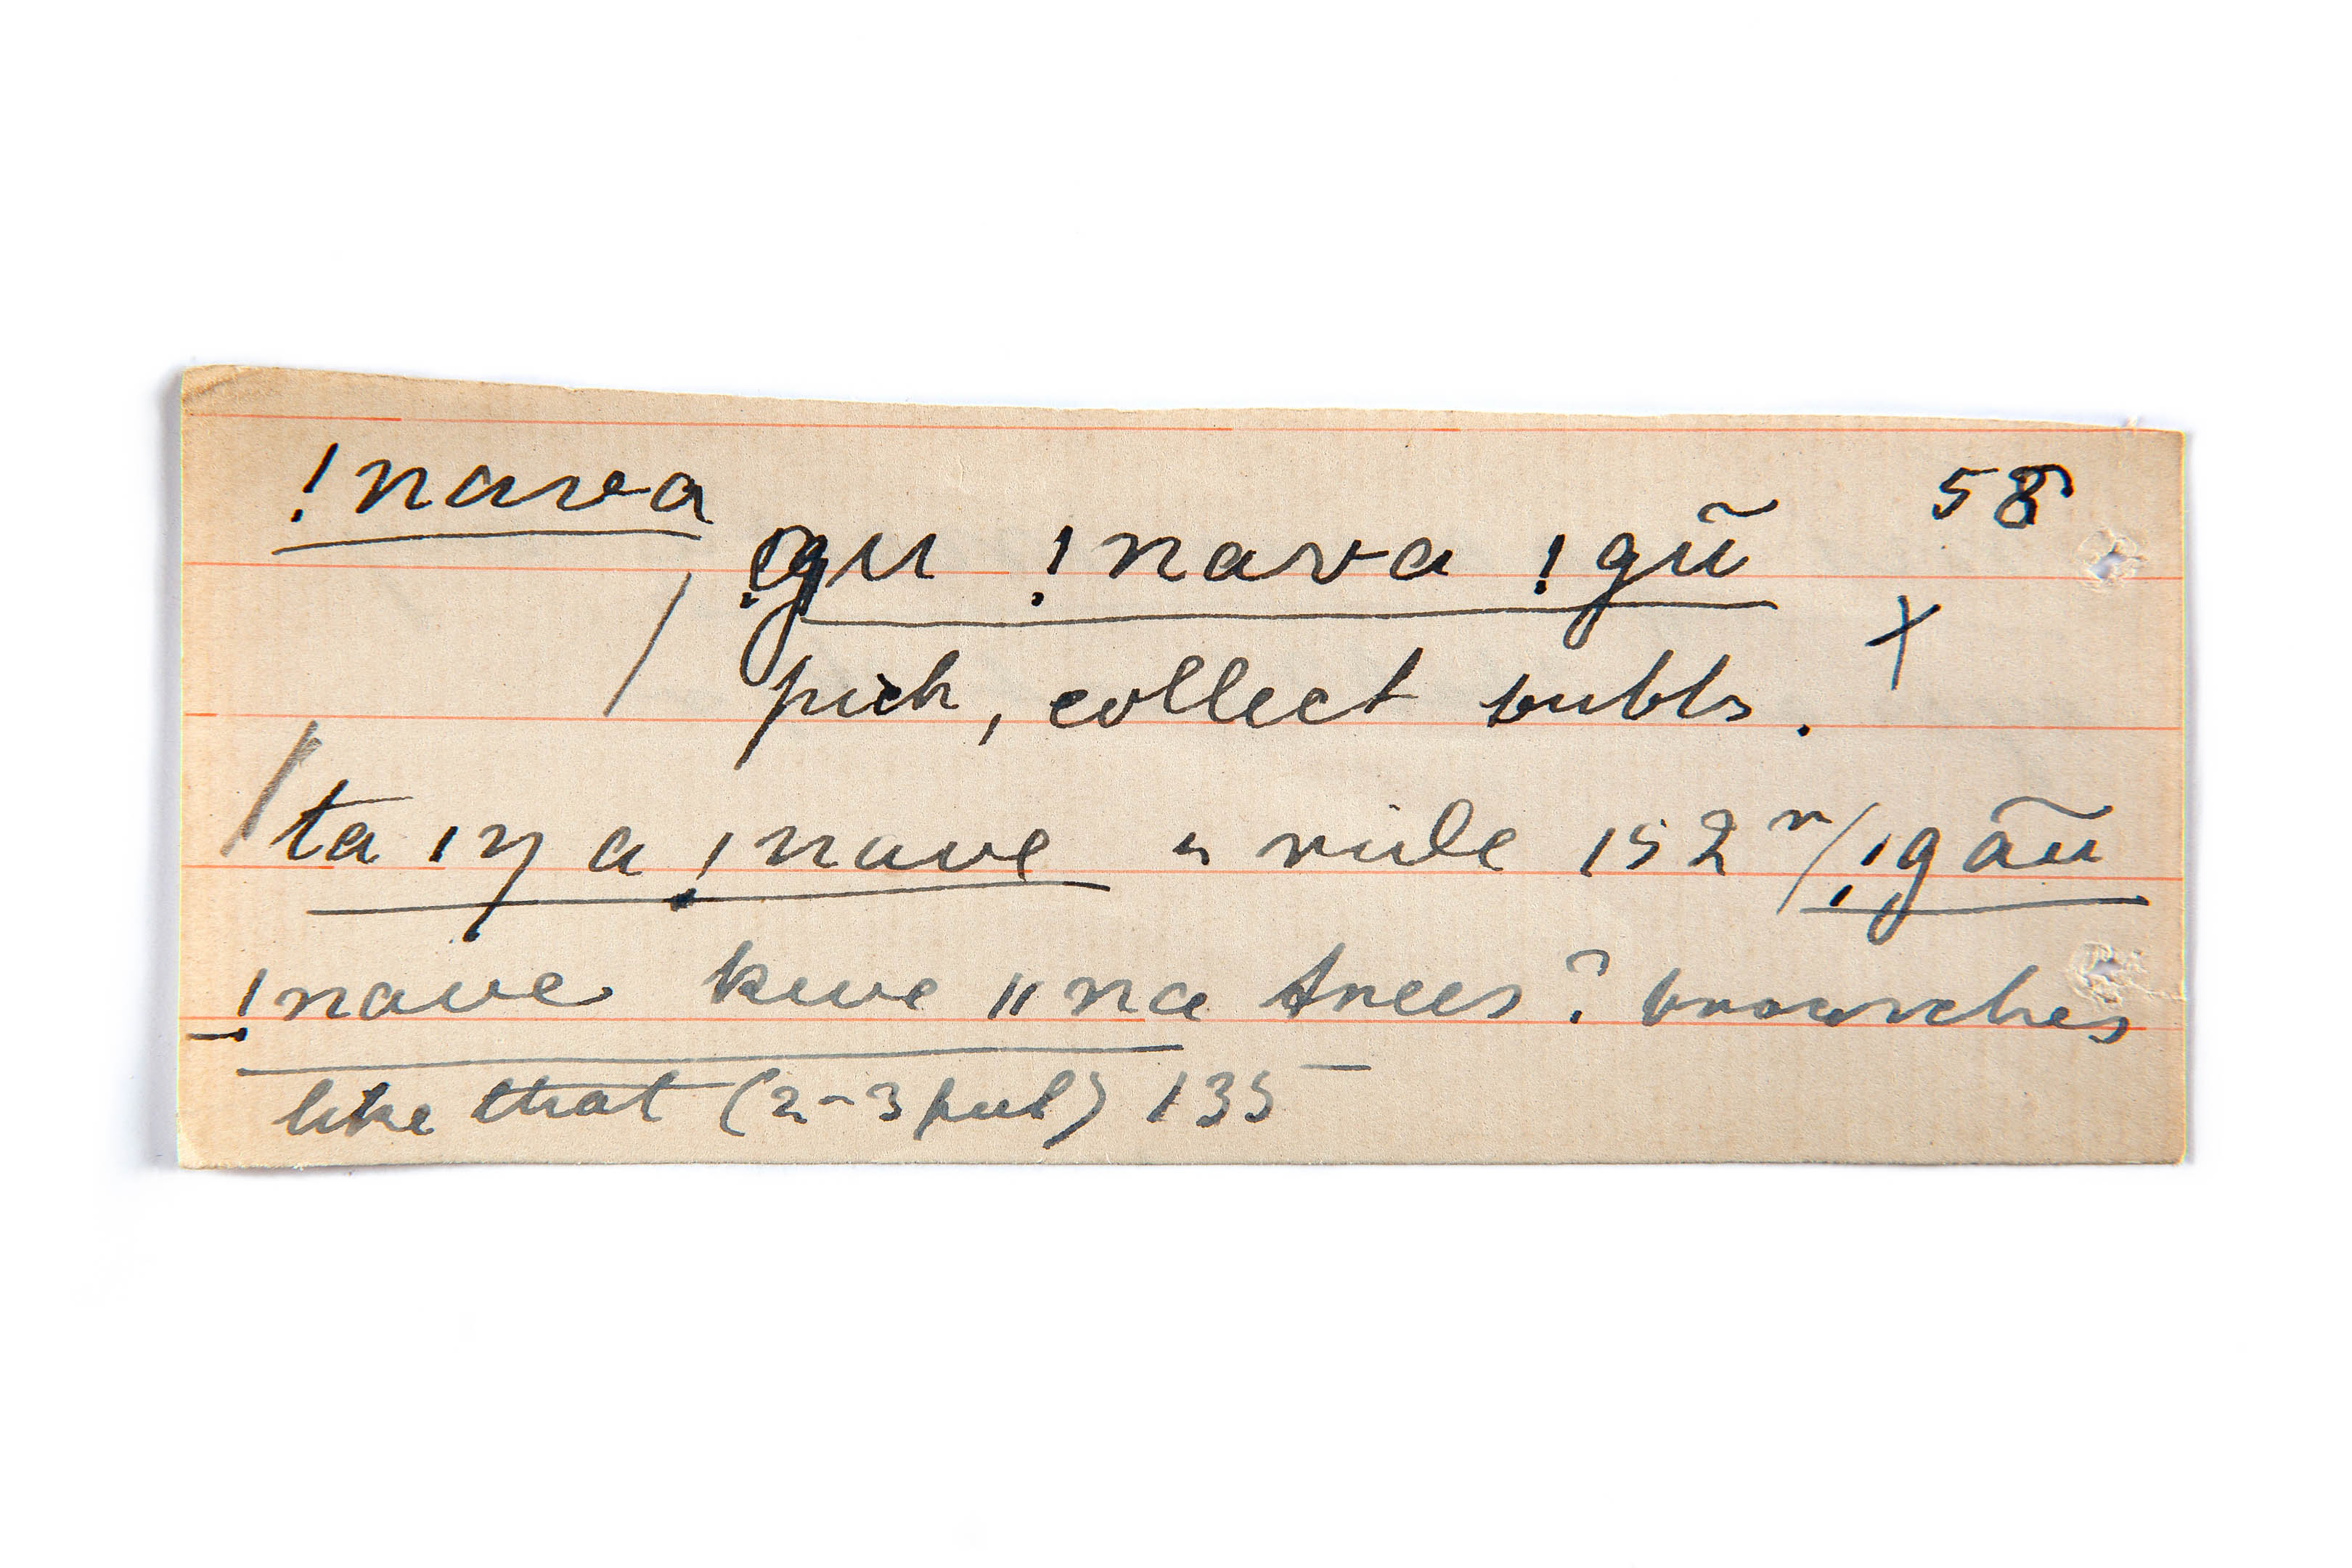 !nava 58
!gu !nava !gũ
pick, collect bulbs. X
/ta !ŋ a !nave " vide 152 r/!gãu
!nave kwe ǁna trees? branches
like that (2-3 pul) 135